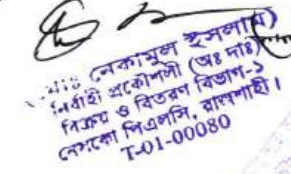 মোঃ নেকামুল ইসলাম)
নির্বাহী প্রকৌশলী (অঃ দাঃ)
বিক্রয় ও বিতরণ বিভাগ-১
নেসকো পিএলসি, রাজশাহী।
T-01-00080